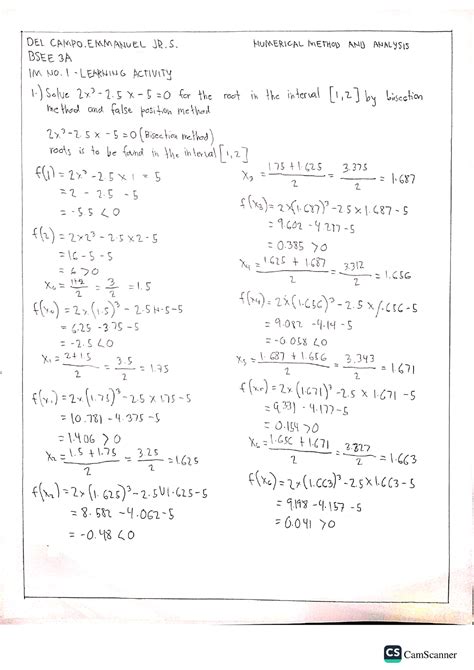 DEL CAMPO, EMMANUEL JR. S.
NUMERICAL METHOD AND ANALYSIS
BSEE 3A
IM NO. 1 - LEARNING ACTIVITY
1.) Solve 2x³-2.5x-5=0 for the root in the interval [1,2] by bisection
method and false position method
2x³-2.5x-5=0 (Bisection method)
roots is to be found in the interval [1,2]
f(1) = 2x³-2.5x1 = 5
= 2 - 2.5 -5
= -5.5 <0
f(2) = 2x2³-2.5x2-5
= 16-5-5
= 6 >0
x₀ = 1+2/2 = 3/2 = 1.5
f(x₀) = 2x(1.5)³-2.5x1.5-5
= 6.25 -3.75 -5
= -2.5 <0
x₁ = 2+1.5/2 = 3.5/2 = 1.75
f(x₁) = 2x(1.75)³-2.5x1.75-5
= 10.781 -4.375 -5
= 1.406 >0
x₂ = 1.5+1.75/2 = 3.25/2 = 1.625
f(x₂) = 2x(1.625)³-2.5x1.625-5
= 8.582 -4.062-5
= -0.48 <0
x₃ = 1.75+1.625/2 = 3.375/2 = 1.687
f(x₃) = 2x(1.687)³-2.5x1.687-5
= 9.602 -4.217-5
= 0.385 >0
x₄ = 1.625 + 1.687/2 = 3.312/2 = 1.656
f(x₄) = 2x(1.656)³-2.5x1.656-5
= 9.082 -4.14-5
= -0.058 <0
x₅ = 1.687 + 1.656/2 = 3.343/2 = 1.671
f(x₅) = 2x(1.671)³-2.5x1.671-5
= 9.331 -4.177-5
= 0.154 >0
x₆ = 1.656 + 1.671/2 = 3.327/2 = 1.663
f(x₆) = 2x(1.663)³-2.5x1.663-5
= 9.198 -4.157-5
= 0.041 >0
CS CamScanner